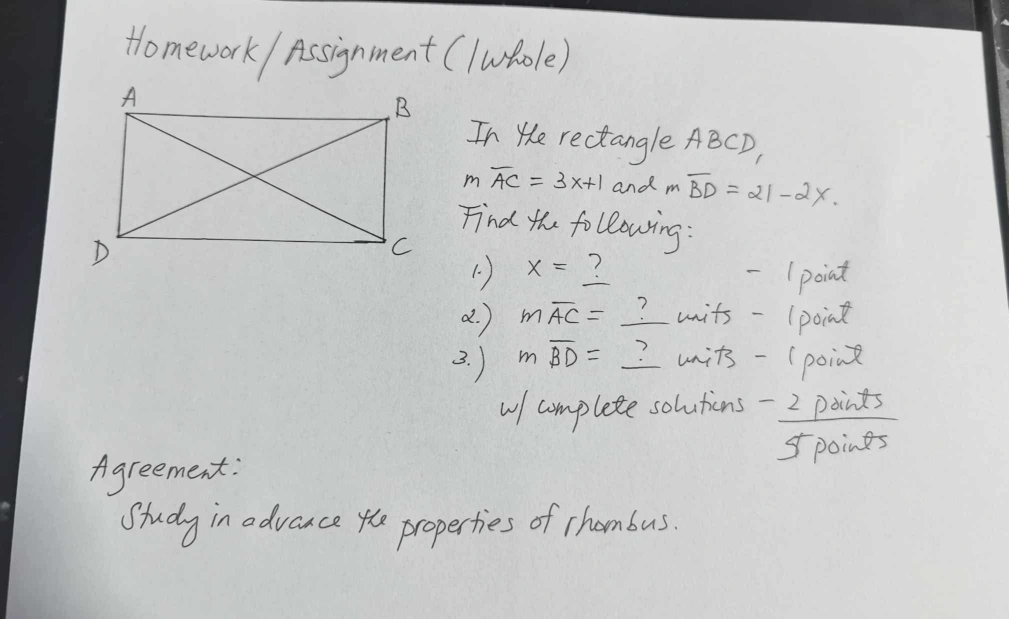 Homework/Assignment (1 whole)
A
B
D
C
In the rectangle ABCD,
m AC = 3x+1 and m BD = 21-2x.
Find the following:
1.) x = ? - 1 point
2.) m AC = ? units - 1 point
3.) m BD = ? units - 1 point
w/ complete solutions - 2 points
5 points
Agreement:
Study in advance the properties of rhombus.